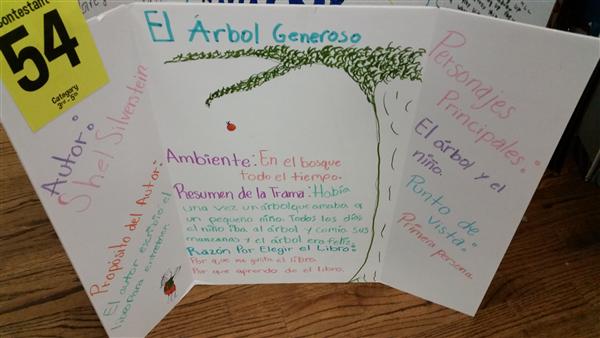 Contestant
54
Category
3rd - 5th
Autor:
Shel Silverstein
Propósito del Autor:
El autor escribió el
libro para entretener.
El Árbol Generoso
Ambiente: En el bosque
todo el tiempo.
Resumen de la Trama: Había
una vez un árbol que amaba a
un pequeño niño. Todos los días
el niño iba al árbol y comía sus
manzanas y el árbol era feliz.
Razón Por Elegir el Libro:
Por que me gusta el libro.
Por que aprendo de el libro.
Personajes
Principales:
El árbol y el
niño.
Punto de
vista:
Primera persona.